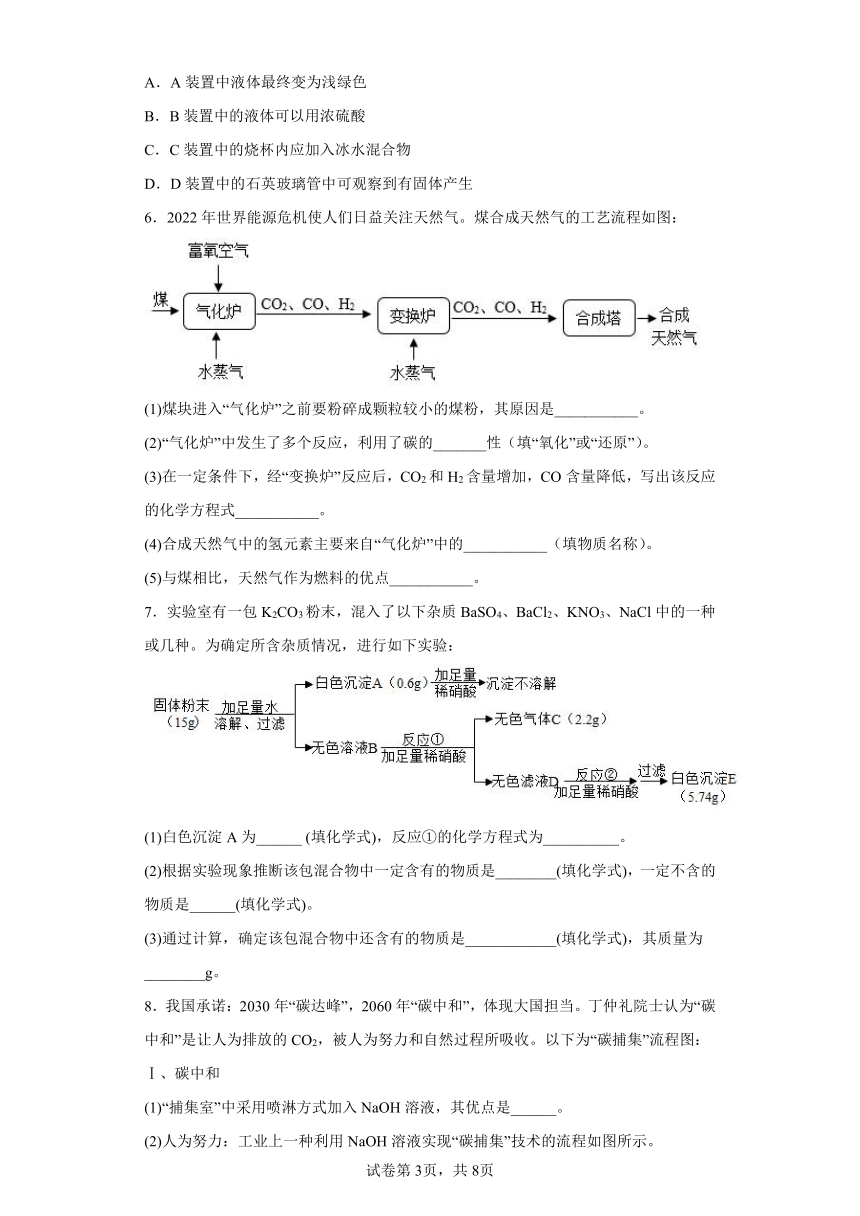 A．A 装置中液体最终变为浅绿色
B．B 装置中的液体可以用浓硫酸
C．C 装置中的烧杯内应加入冰水混合物
D．D 装置中的石英玻璃管中可观察到有固体产生
6．2022 年世界能源危机使人们日益关注天然气。煤合成天然气的工艺流程如图：
富氧空气
煤
气化炉
CO₂、CO、H₂
变换炉
CO₂、CO、H₂
合成塔
合成
天然气
水蒸气
水蒸气
(1)煤块进入“气化炉”之前要粉碎成颗粒较小的煤粉，其原因是___________。
(2)“气化炉”中发生了多个反应，利用了碳的_______性（填“氧化”或“还原”）。
(3)在一定条件下，经“变换炉”反应后，CO₂和 H₂含量增加，CO 含量降低，写出该反应
的化学方程式___________。
(4)合成天然气中的氢元素主要来自“气化炉”中的___________（填物质名称）。
(5)与煤相比，天然气作为燃料的优点___________。
7．实验室有一包 K₂CO₃粉末，混入了以下杂质 BaSO₄、BaCl₂、KNO₃、NaCl 中的一种
或几种。为确定所含杂质情况，进行如下实验：
固体粉末
（15g）
加足量水
溶解、过滤
白色沉淀A（0.6g）
加足量
稀硝酸
沉淀不溶解
无色溶液B
反应①
加足量稀硝酸
无色气体C（2.2g）
无色滤液D
反应②
加足量稀硝酸
过滤
白色沉淀E
（5.74g）
(1)白色沉淀 A 为______ (填化学式)，反应①的化学方程式为__________。
(2)根据实验现象推断该包混合物中一定含有的物质是________(填化学式)，一定不含的
物质是______(填化学式)。
(3)通过计算，确定该包混合物中还含有的物质是____________(填化学式)，其质量为
________g。
8．我国承诺：2030 年“碳达峰”，2060 年“碳中和”，体现大国担当。丁仲礼院士认为“碳
中和”是让人为排放的 CO₂，被人为努力和自然过程所吸收。以下为“碳捕集”流程图：
Ⅰ、碳中和
(1)“捕集室”中采用喷淋方式加入 NaOH 溶液，其优点是______。
(2)人为努力：工业上一种利用 NaOH 溶液实现“碳捕集”技术的流程如图所示。
试卷第 3页，共 8页